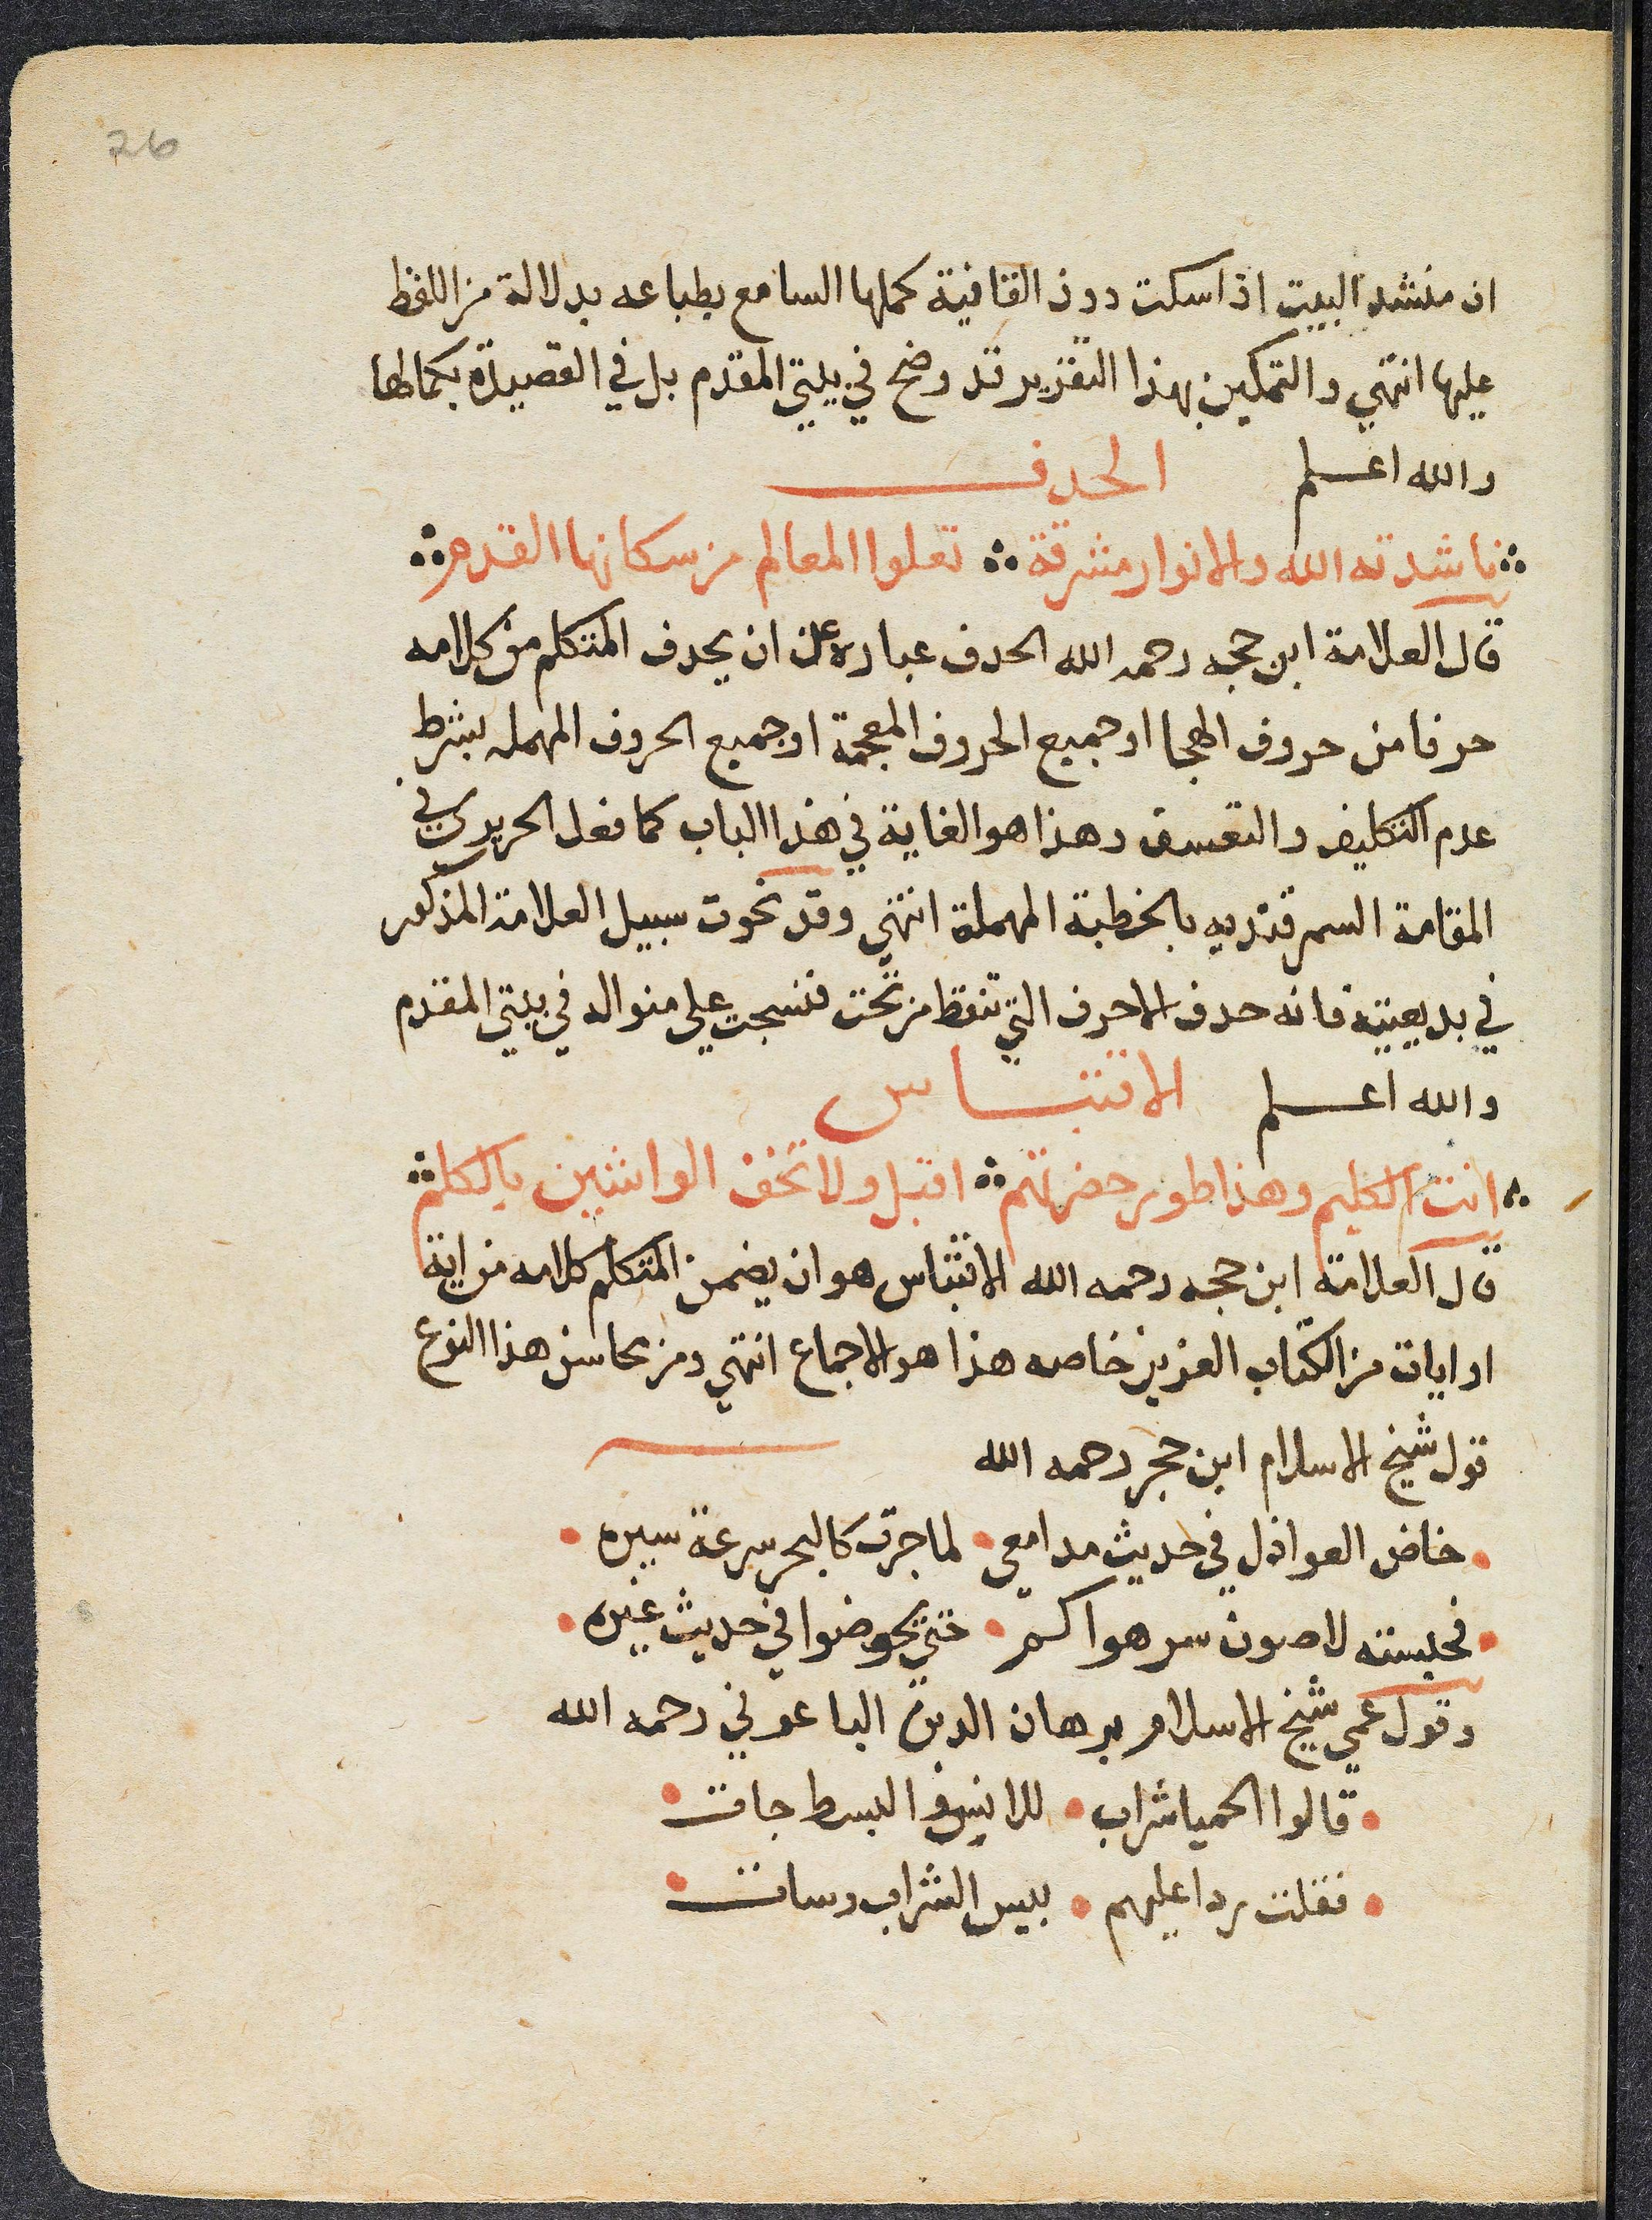 26
ان منشد البيت اذا سكت دون القافية كملها السامع بطباعه بدلالة من اللفظ
عليها انتهي والتمكين بهذا التقرير قد وضح في بيتي المقدم بل في القصيدة بكمالها
والله اعلم الحدف
ناشدته الله والانوار مشرقة تعلوا المعالم من سكانها القدم
قال العلامة ابن حجه رحمه الله الحدف عبارة عن ان يحدف المتكلم من كلامه
حرفا من حروف الهجا او جميع الحروف المعجمة او جميع الحروف المهمله بشرط
عدم التكليف والتعسف وهذا هو الغاية في هذا الباب كما فعل الحريري في
المقامة السمرقنديه بالخطبة المهملة انتهي وقد نحوت سبيل العلامة المذكور
في بديعيته فانه حدف الاحرف التي تنقط من تحت فنسجت علي منواله في بيتي المقدم
والله اعلم الاقتباس
انت الكليم وهذا طور حضرتهم اقبل ولا تخف الواشين بالكلم
قال العلامة ابن حجه رحمه الله الاقتباس هو ان يضمن المتكلم كلامه من اية
او ايات من الكتاب العزيز خاصه هذا هو الاجماع انتهي ومن محاسن هذا النوع
قول شيخ الاسلام ابن حجر رحمه الله
خاض العواذل في حديث مدامعي لما جرت كالبحر سرعة سيره
فحبسته لاصون سر هواكم حتي يخوضوا في حديث غيره
وقول عمي شيخ الاسلام برهان الدين الباعوني رحمه الله
قالوا الحميا شراب للانس والبسط جات
فقلت ردا عليهم بيس الشراب وسات